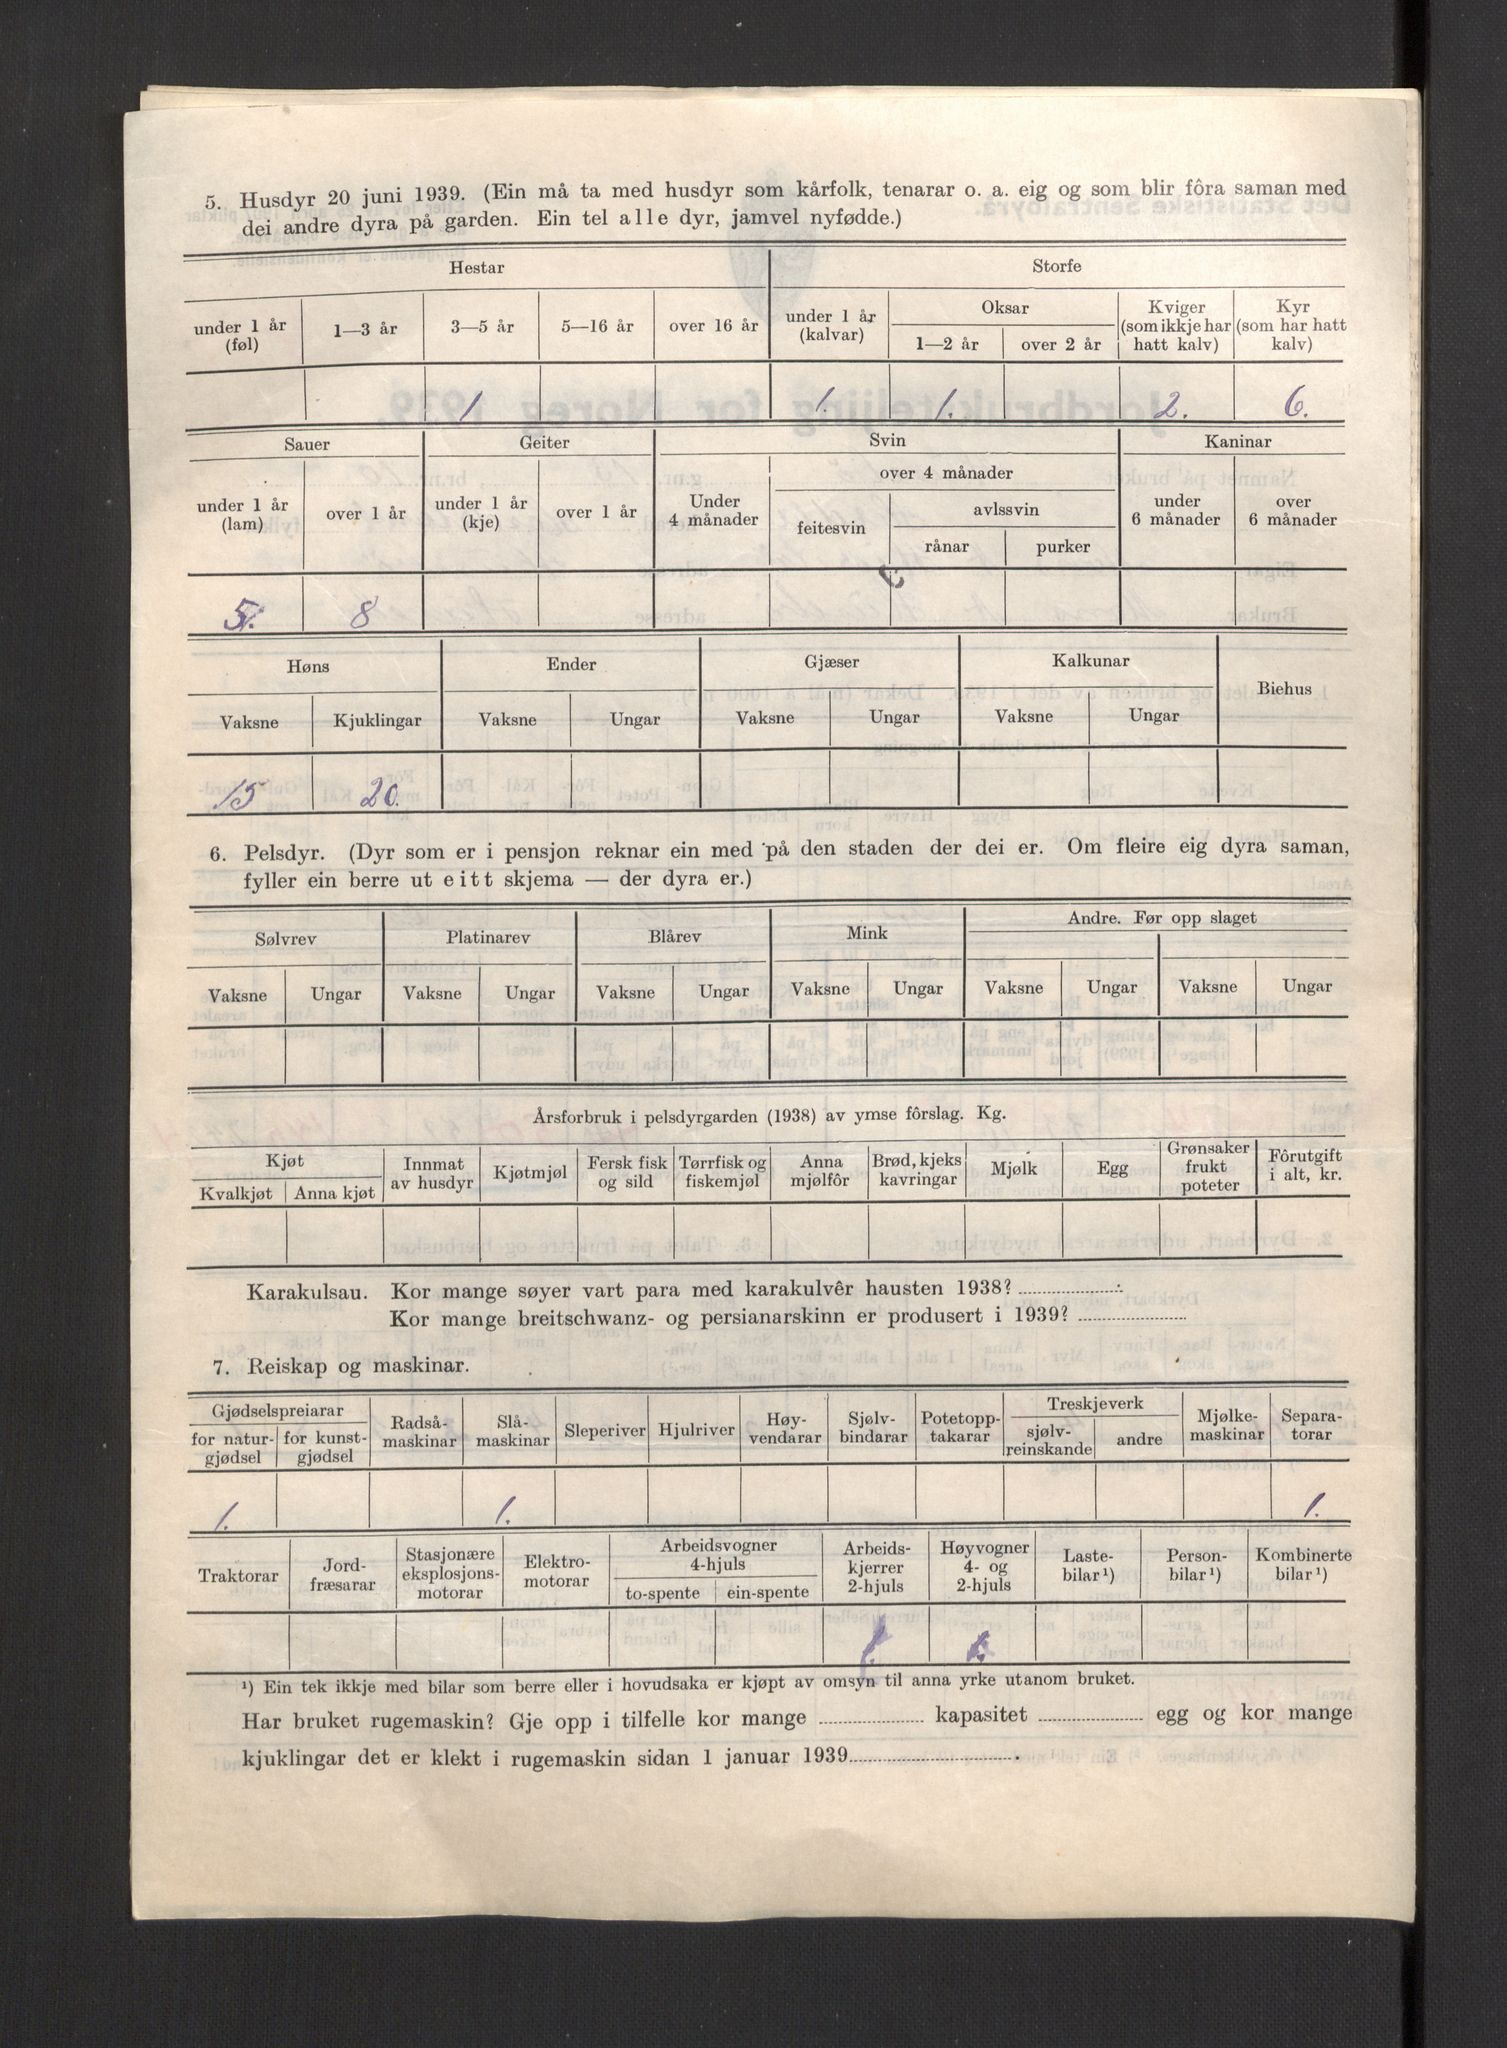 5. Husdyr 20 juni 1939. (Ein må ta med husdyr som kårfolk, tenarar o. a. eig og som blir fôra saman med
dei andre dyra på garden. Ein tel alle dyr, jamvel nyfødde.)
Hestar Storfe
under 1 år (føl) 1—3 år 3—5 år 5—16 år over 16 år under 1 år (kalvar) Oksar 1—2 år over 2 år Kviger (som ikkje har hatt kalv) Kyr (som har hatt kalv)
1 1. 1. 2. 6.
Sauer Geiter Svin Kaninar
under 1 år (lam) over 1 år under 1 år (kje) over 1 år Under 4 månader over 4 månader feitesvin avlssvin rånar purker under 6 månader over 6 månader
5. 8
Høns Ender Gjæser Kalkunar Biehus
Vaksne Kjuklingar Vaksne Ungar Vaksne Ungar Vaksne Ungar
15 20.
6. Pelsdyr. (Dyr som er i pensjon reknar ein med på den staden der dei er. Om fleire eig dyra saman,
fyller ein berre ut eitt skjema — der dyra er.)
Sølvrev Platinarev Blårev Mink Andre. Før opp slaget
Vaksne Ungar Vaksne Ungar Vaksne Ungar Vaksne Ungar Vaksne Ungar Vaksne Ungar
Årsforbruk i pelsdyrgarden (1938) av ymse fôrslag. Kg.
Kjøt Kvalkjøt Anna kjøt Innmat av husdyr Kjøtmjøl Fersk fisk og sild Tørrfisk og fiskemjøl Anna mjølfôr Brød, kjeks kavringar Mjølk Egg Grønsaker frukt poteter Fôrutgift i alt, kr.
Karakulsau. Kor mange søyer vart para med karakulvêr hausten 1938?
Kor mange breitschwanz- og persianarskinn er produsert i 1939?
7. Reiskap og maskinar.
Gjødselspreiarar for natur-gjødsel for kunst-gjødsel Radså-maskinar Slå-maskinar Sleperiver Hjulriver Høy-vendarar Sjølv-bindarar Potetopp-takarar Treskjeverk sjølv-reinskande andre Mjølke-maskinar Separa-torar
1. 1. 1.
Traktorar Jord-fræsarar Stasjonære eksplosjons-motorar Elektro-motorar Arbeidsvogner 4-hjuls to-spente ein-spente Arbeids-kjerrer 2-hjuls Høyvogner 4- og 2-hjuls Laste-bilar¹) Person-bilar¹) Kombinerte bilar¹)
1.
¹) Ein tek ikkje med bilar som berre eller i hovudsaka er kjøpt av omsyn til anna yrke utanom bruket.
Har bruket rugemaskin? Gje opp i tilfelle kor mange kapasitet egg og kor mange
kjuklingar det er klekt i rugemaskin sidan 1 januar 1939